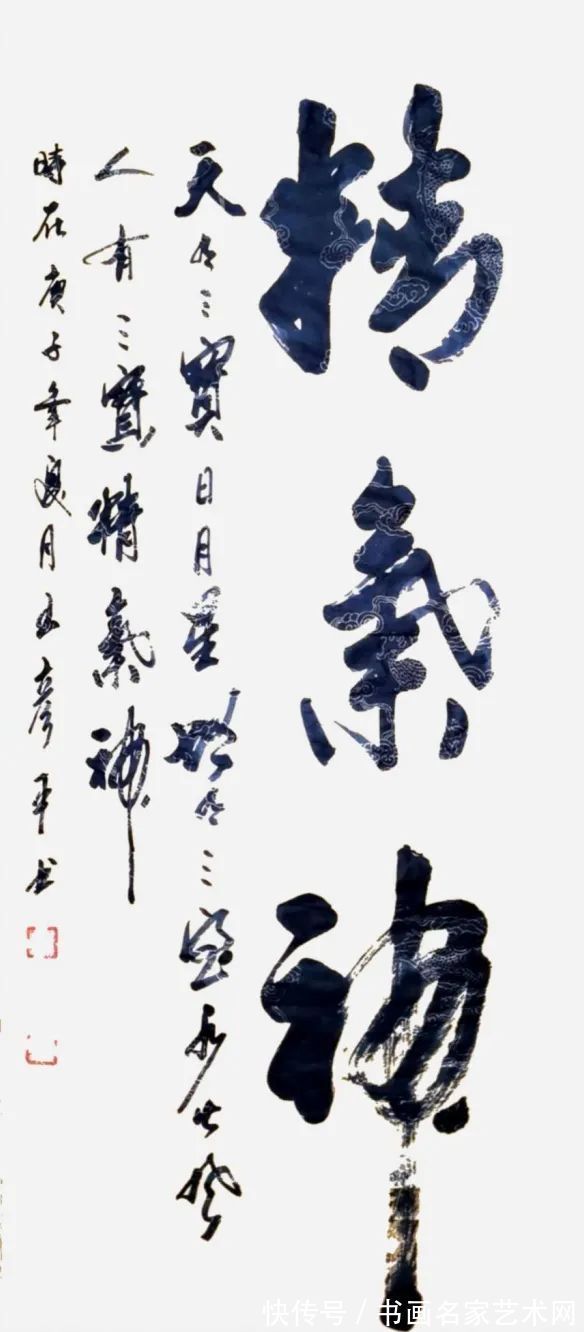 精氣神
天有三寶日月星地有三寶水火風
人有三寶精氣神
時在庚子年夏月王彦平书
快传号/书画名家艺术网